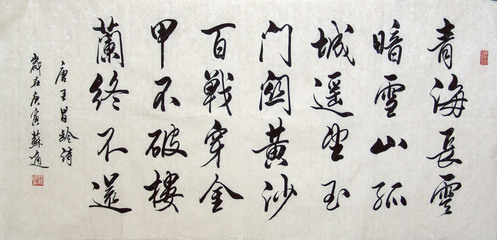 青海長雲
暗雪山孤
城遥望玉
門關黄沙
百戰穿金
甲不破樓
蘭終不還
唐王昌齡詩
歲在庚寅蘇